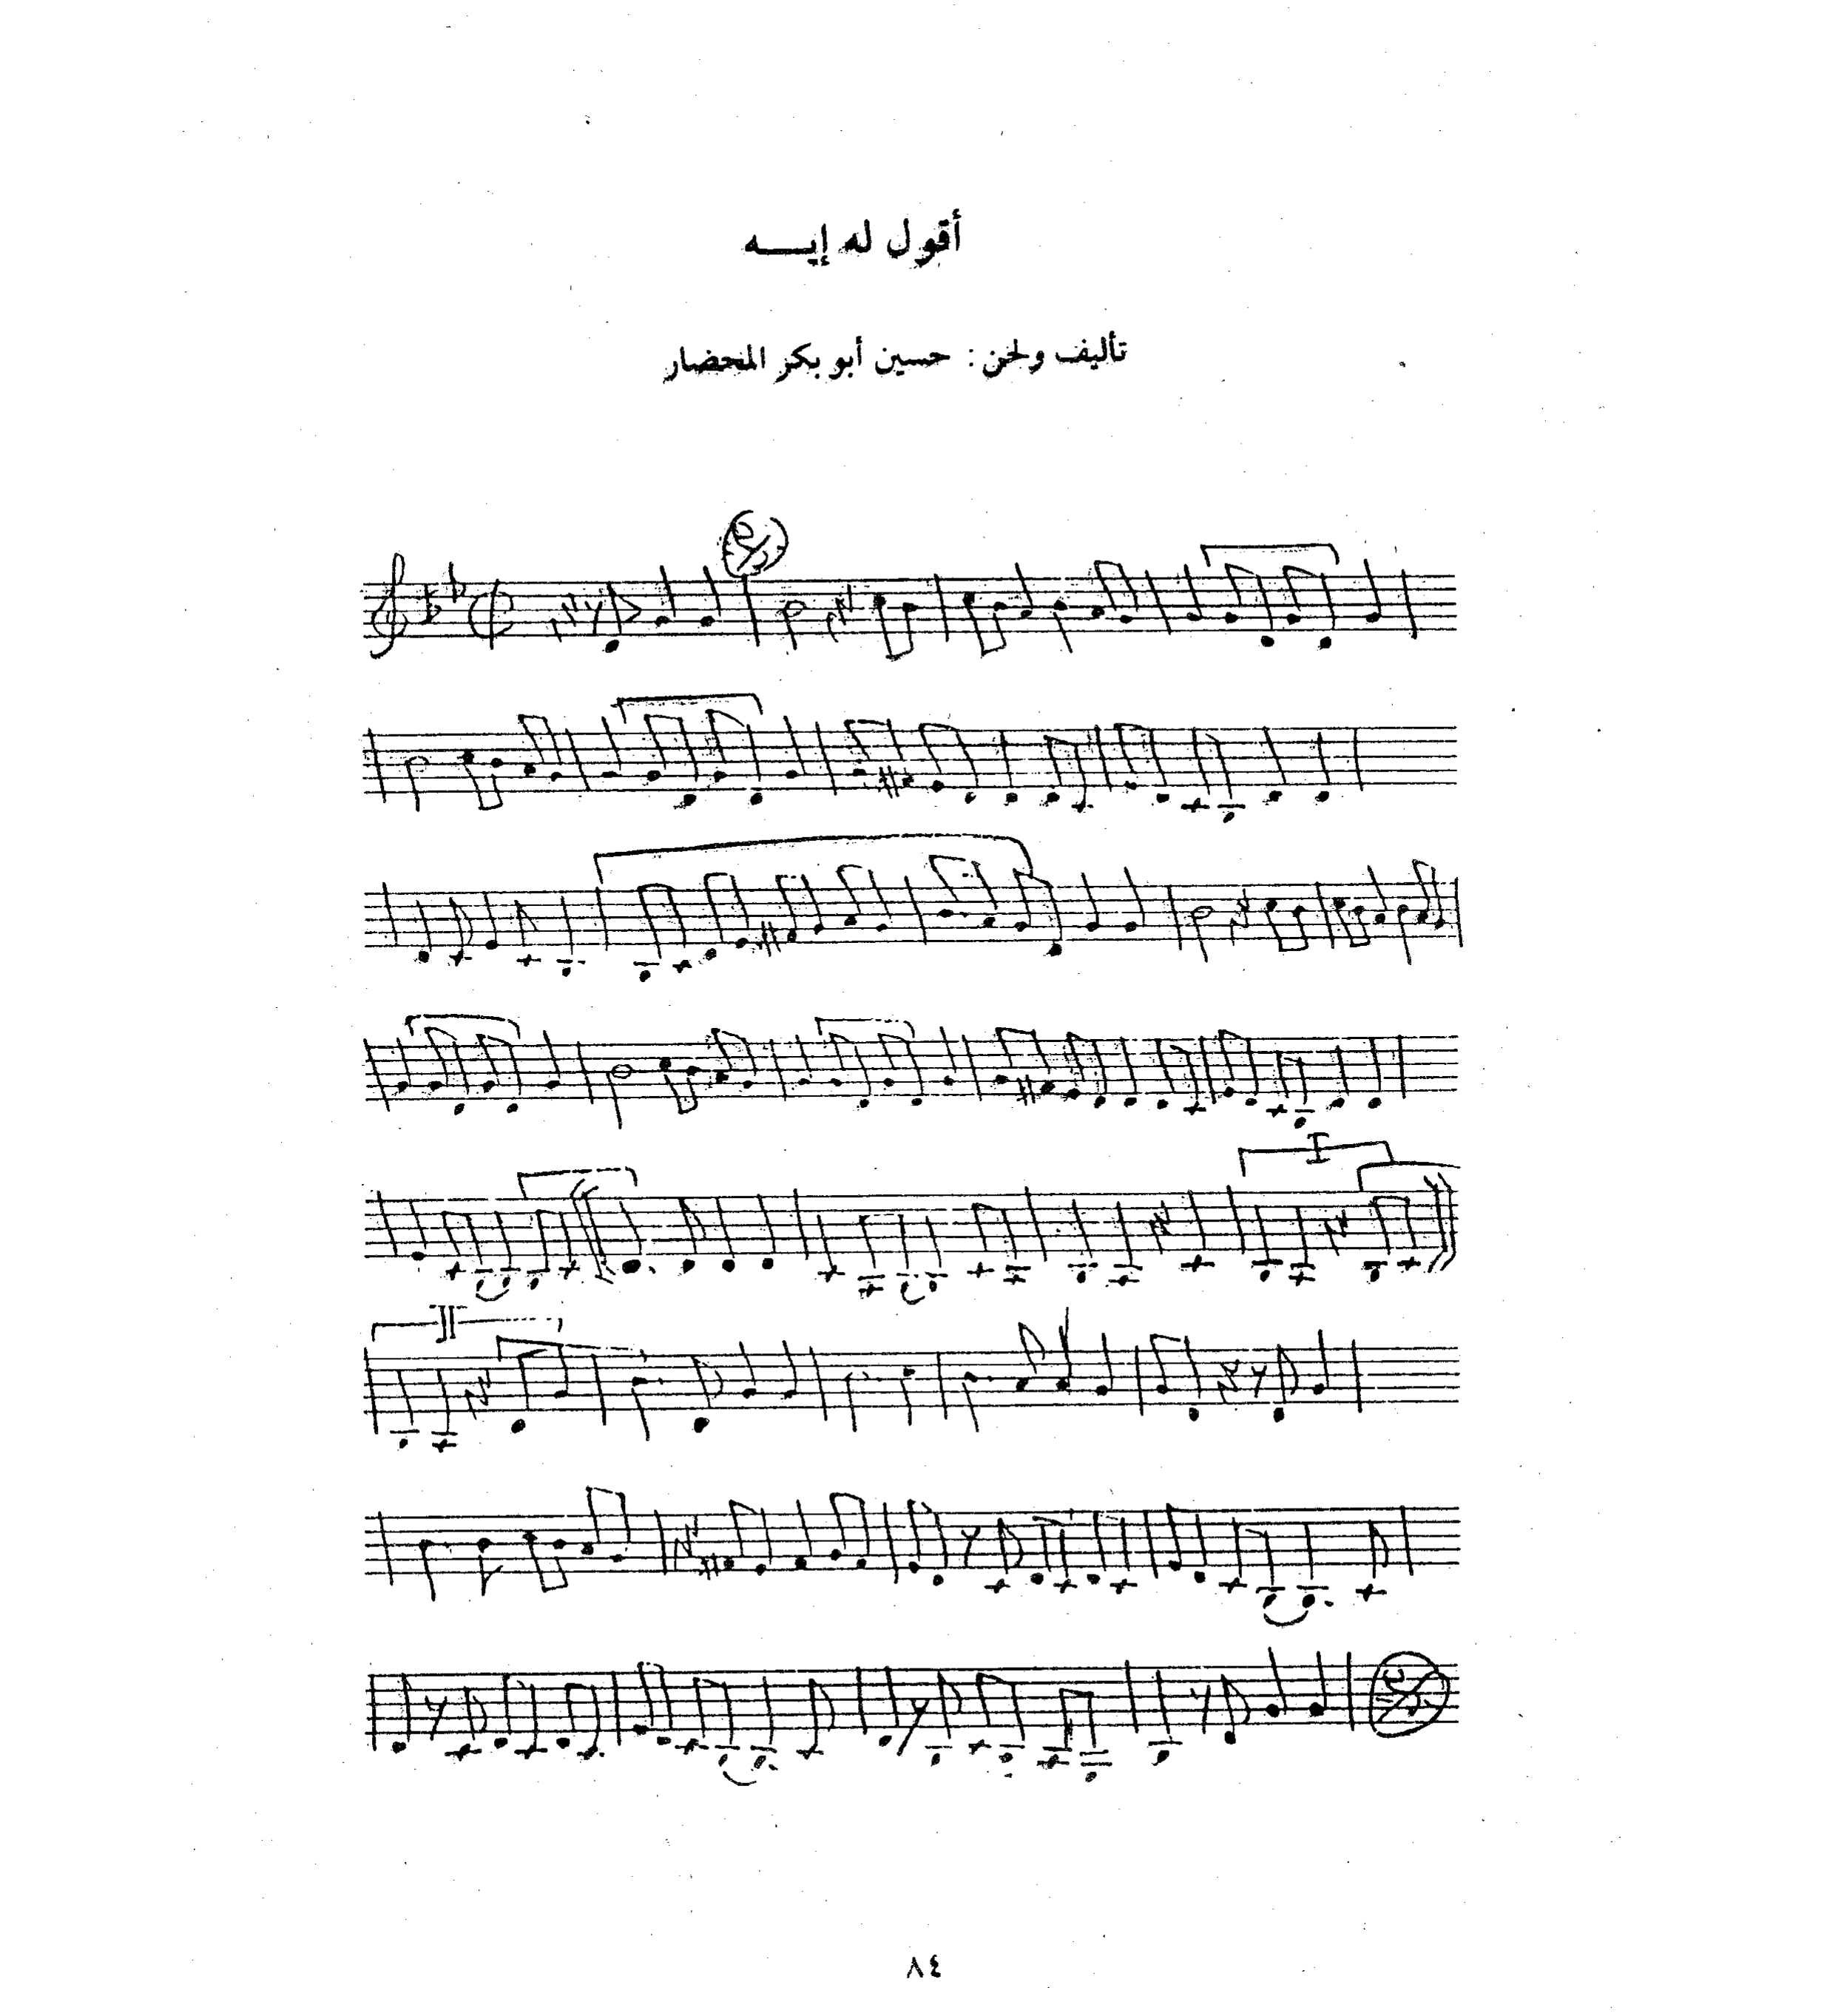 أقول له إيـــه
تأليف ولحن : حسين أبو بكر المحضار
I
II
٨٤